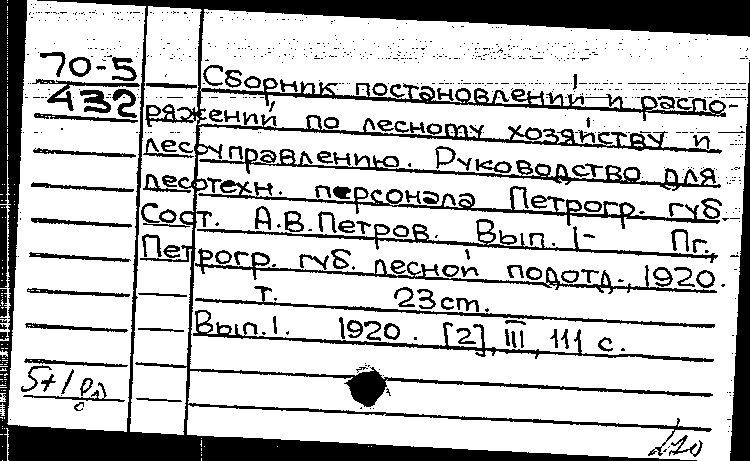 70-5
432
Сборник постановлений и распо-
ряжений по лесному хозяйству и
лесоуправлению. Руководство для
лесотехн. персонала Петрогр. губ.
Сост. А.В.Петров. Вып. 1- Пг.,
Петрогр. губ. лесной подотд., 1920.
т. 23 ст.
Вып.1. 1920. [2], III, 111 с.